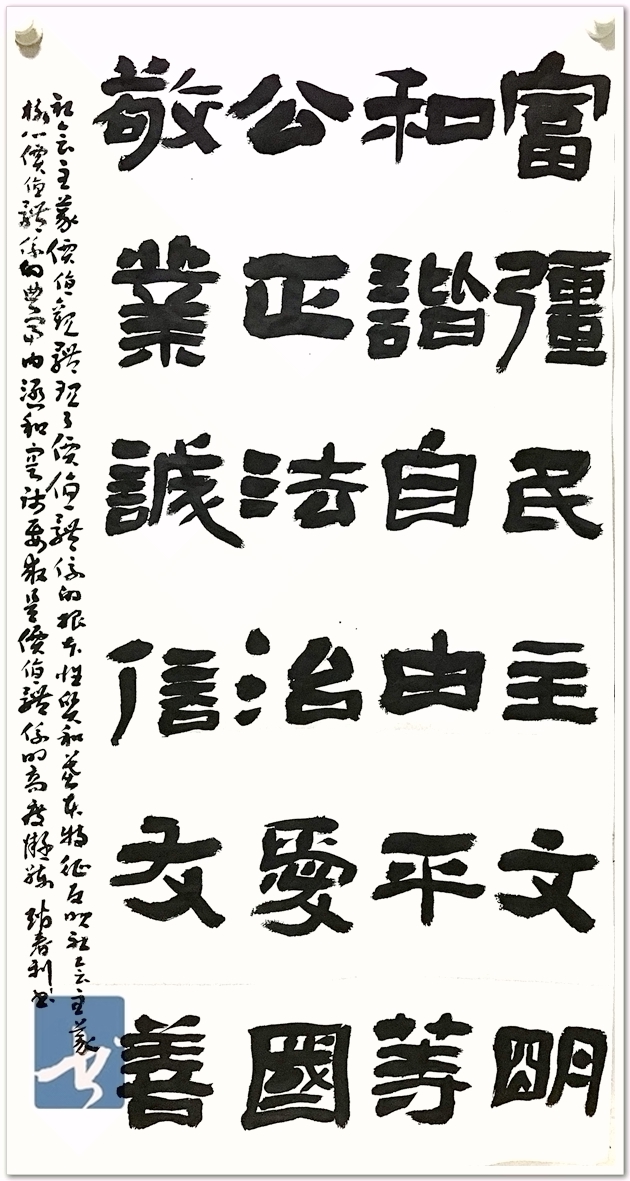 富彊民主文明
和諧自由平等
公正法治愛國
敬業誠信友善
社会主義價值觀體現了價值體係的根本性質和基本特征反映社会主義
核心價值體係的豊富内涵和實踐要求是價值體係的高度凝練 春利书
书